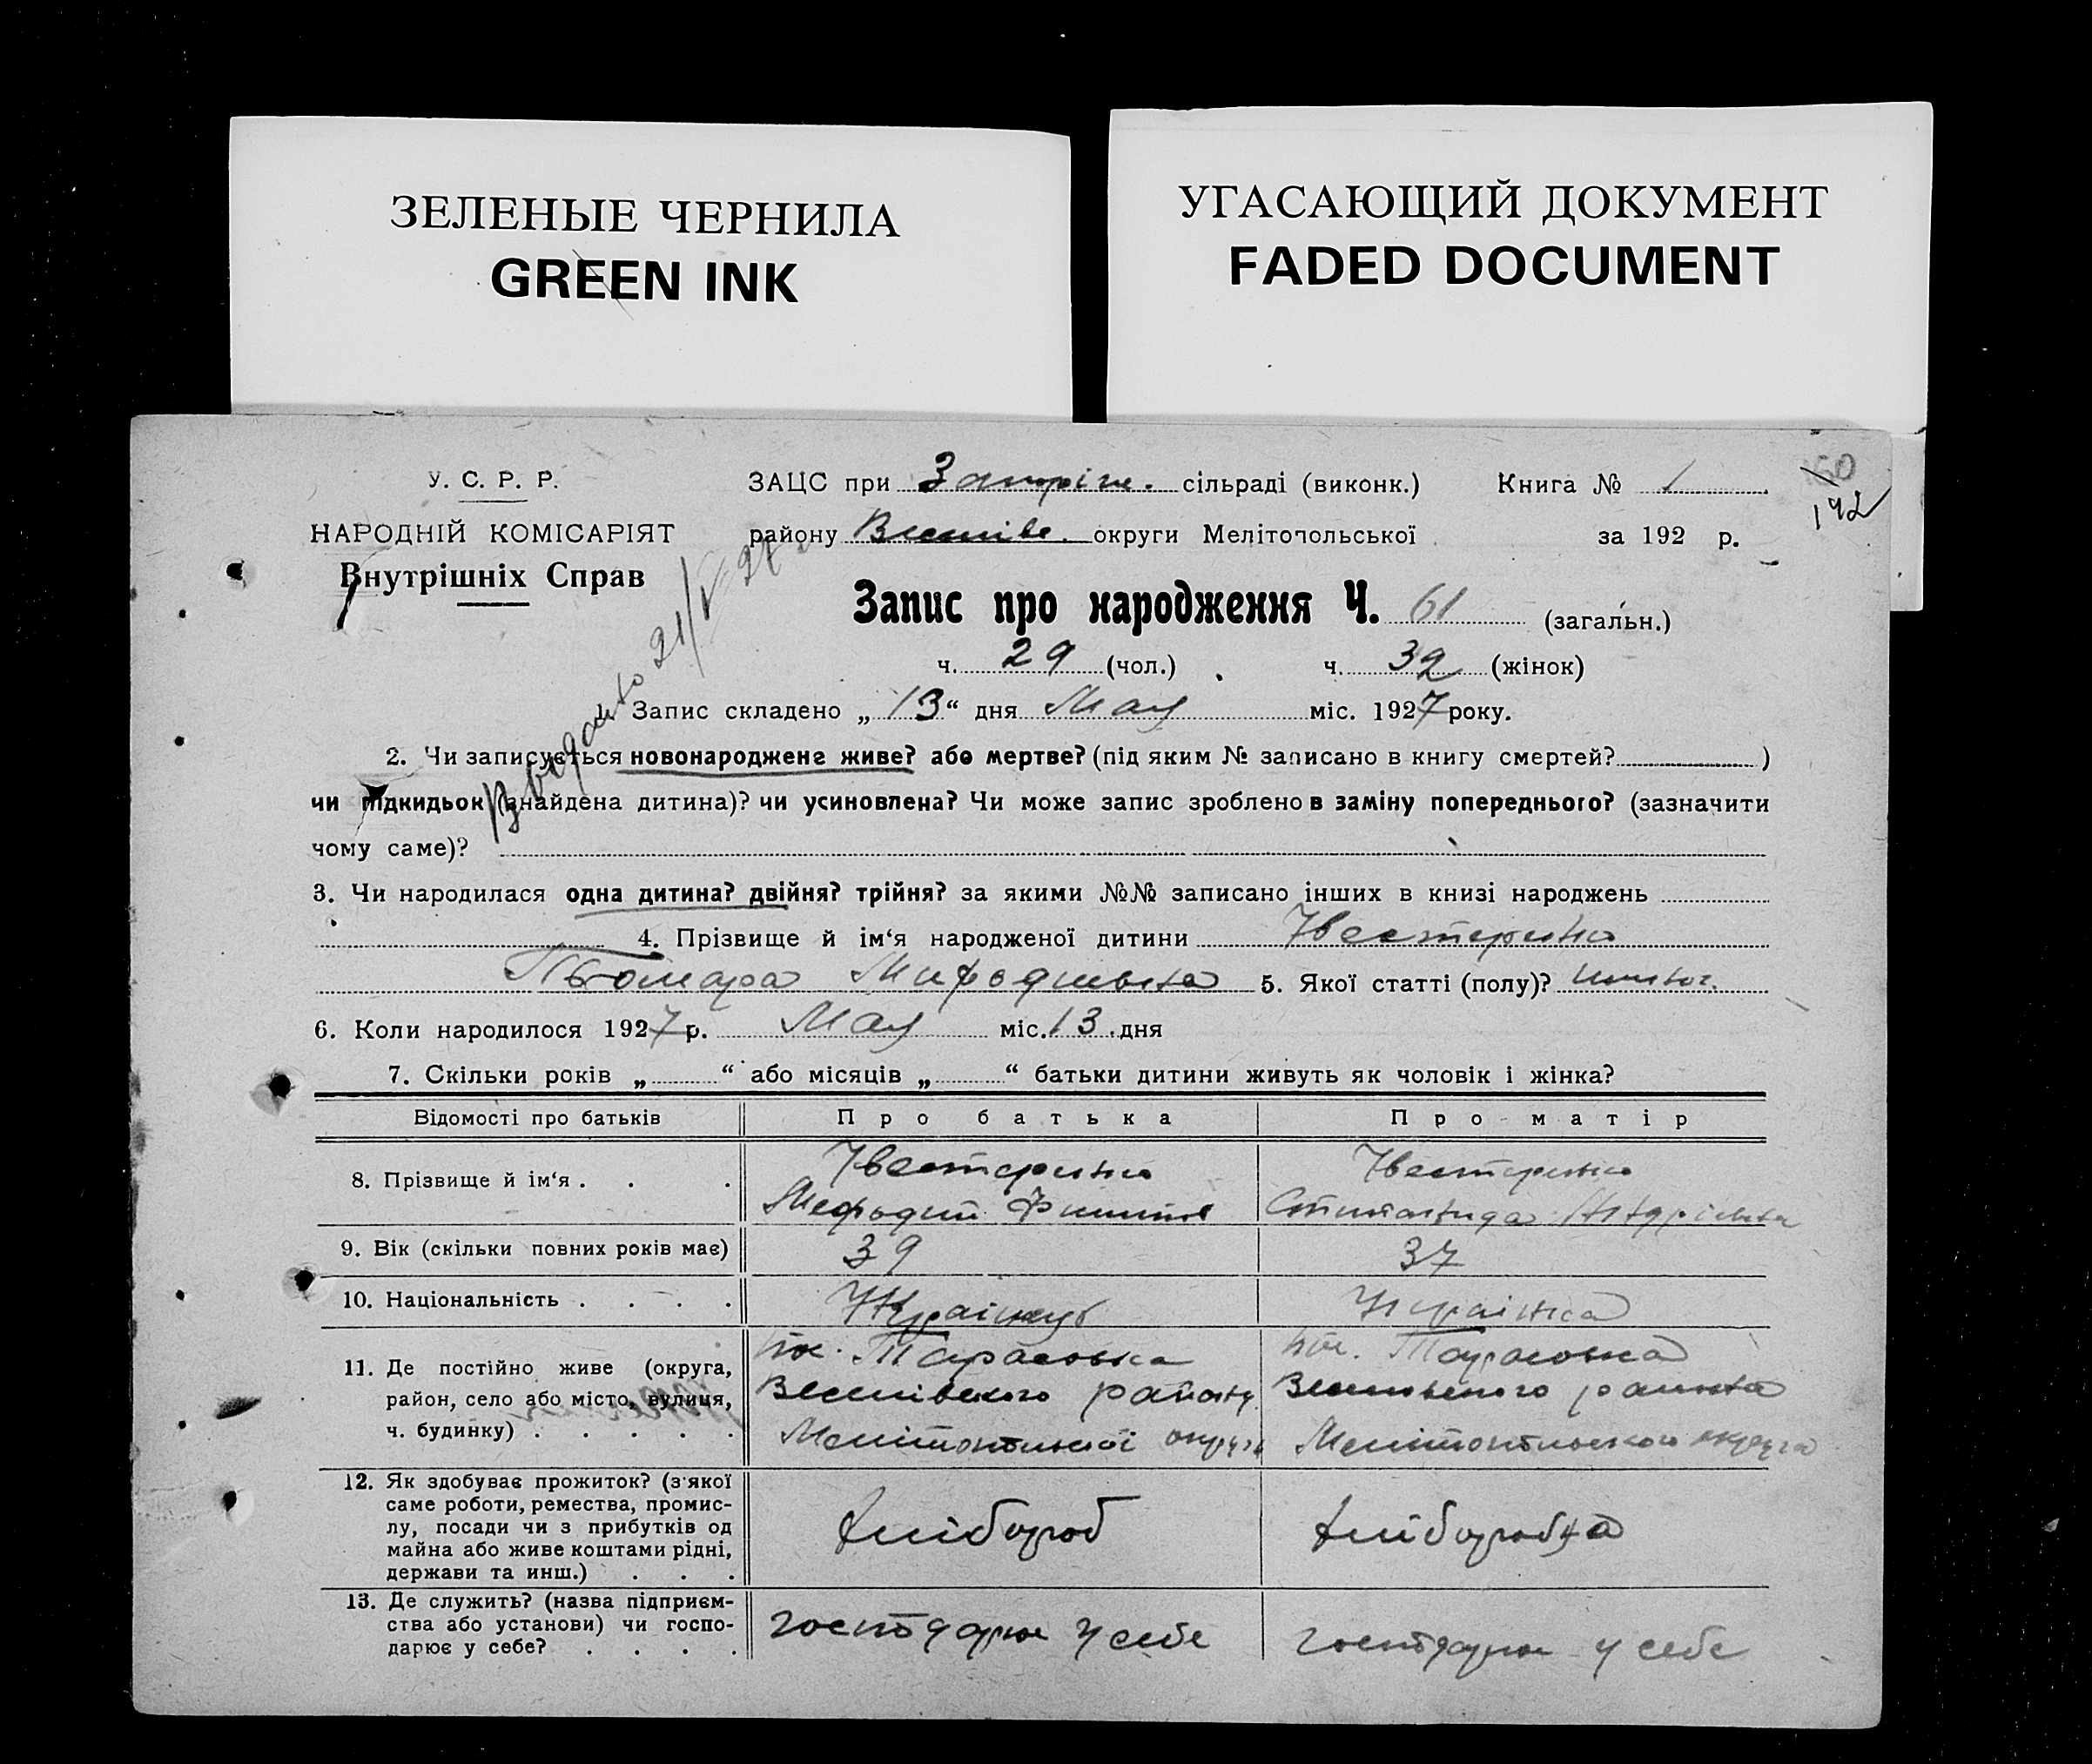 ЗЕЛЕНЫЕ ЧЕРНИЛА
GREEN INK
УГАСАЮЩИЙ ДОКУМЕНТ
FADED DOCUMENT
У. С. Р. Р.
НАРОДНІЙ КОМІСАРІЯТ
Внутрішніх Справ
ЗАЦС при Запріж. сільраді (виконк.) Книга № 1
району Веселівс. округи Мелітопольської за 192 р.
192
21/V-27
Запис про народження Ч. 61 (загальн.)
ч. 29 (чол.) ч. 32 (жінок)
Запис складено „13“ дня Мая міс. 1927 року.
2. Чи записується новонароджене живе? або мертве? (під яким № записано в книгу смертей? )
чи підкидьок (знайдена дитина)? чи усиновлена? Чи може запис зроблено в заміну попереднього? (зазначити
чому саме)?
3. Чи народилася одна дитина? двійня? трійня? за якими №№ записано інших в книзі народжень
4. Прізвище й ім‘я народженої дитини
Мефодиевна 5. Якої статті (полу)?
6. Коли народилося 1927 р. Мая міс. 13 дня
7. Скільки років „ “ або місяців „ “ батьки дитини живуть як чоловік і жінка?
Відомості про батьків Про батька Про матір
8. Прізвище й ім‘я
Мефодий
9. Вік (скільки повних років має) 39 37
10. Національність Українець Українка
11. Де постійно живе (округа, район, село або місто, вулиця, ч. будинку)
Тарасовка Тарасовка
Веселівського району Веселовского района
Мелітопольскої округи Мелітопольского округа
12. Як здобуває прожиток? (з‘якої
саме роботи, ремества, промис-
лу, посади чи з прибутків од
майна або живе коштами рідні,
держави та инш.)
хлібороб хліборобка
13. Де служить? (назва підприєм-
ства або установи) чи госпо-
дарює у себе?
господарює у себе господарює у себе